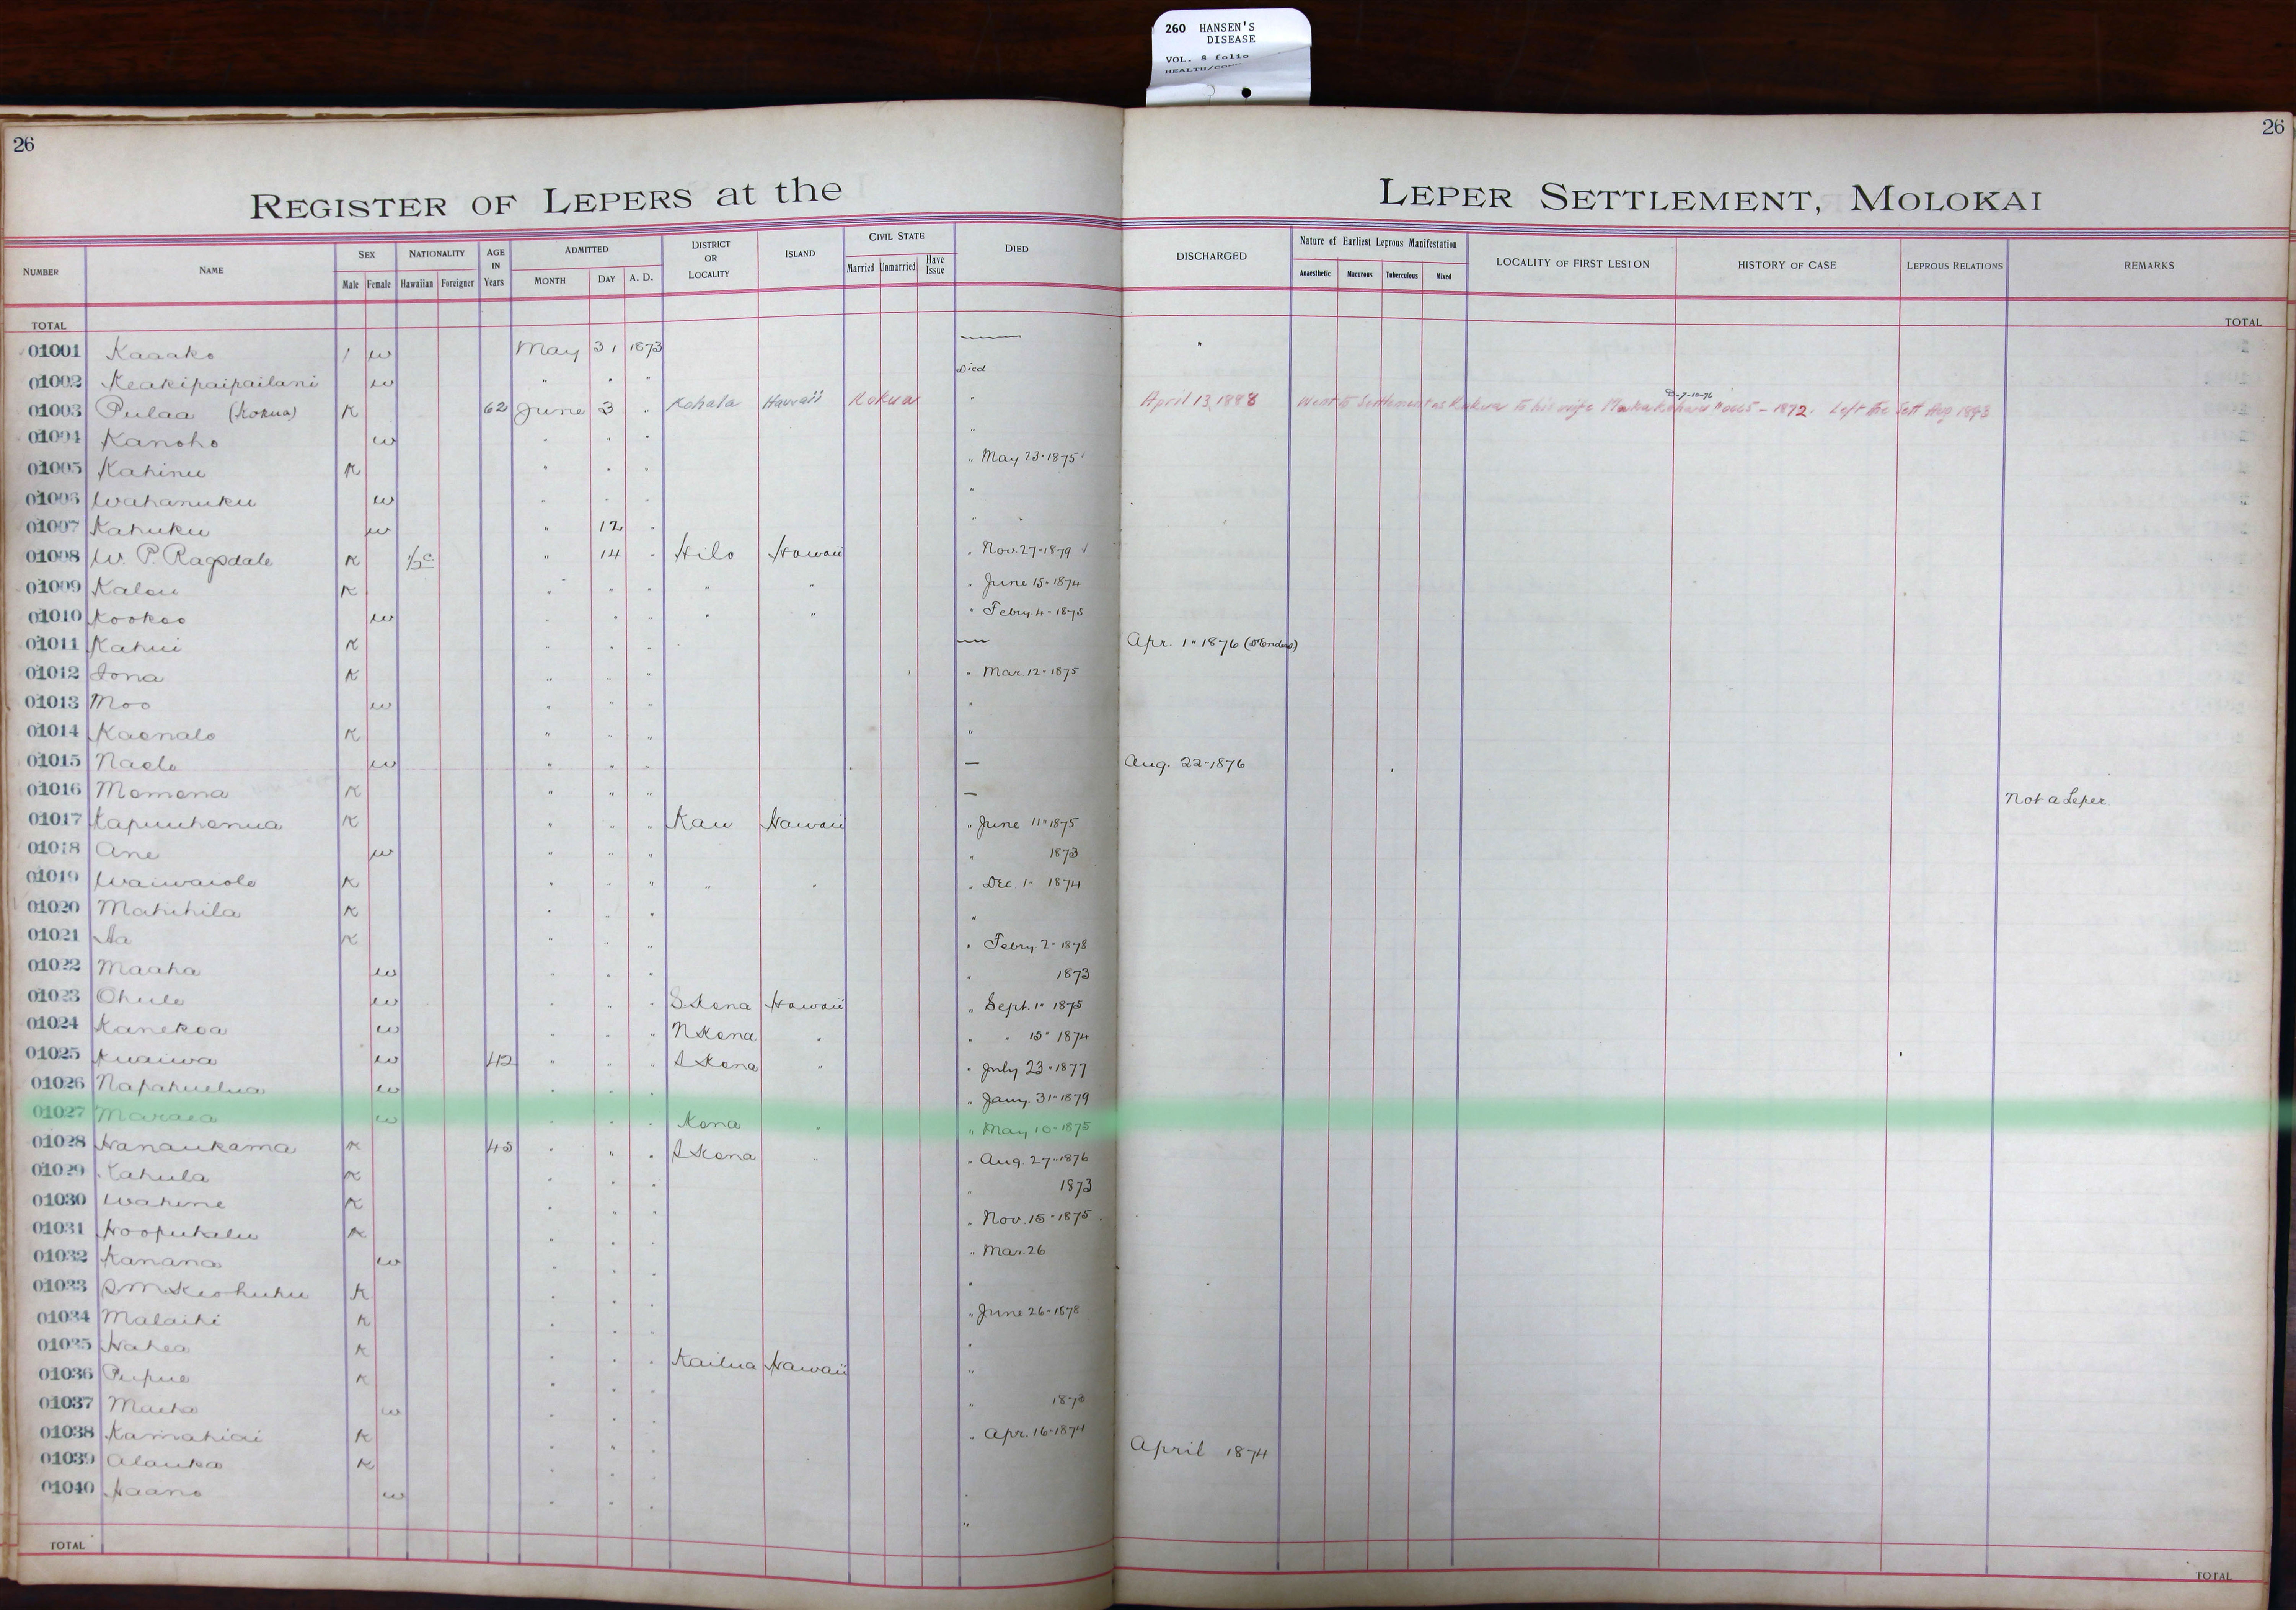 260 HANSEN'S
DISEASE
VOL. 8 folio
HEALTH/
26
26
REGISTER OF LEPERS at the LEPER SETTLEMENT, MOLOKAI
NUMBER NAME SEX Male Female NATIONALITY Hawaiian Foreigner AGE IN Years ADMITTED MONTH DAY A. D. DISTRICT OR LOCALITY ISLAND CIVIL STATE Married Unmarried Have Issue DIED DISCHARGED Nature of Earliest Leprous Manifestation Anaesthetic Macurous Tuberculous Mixed LOCALITY OF FIRST LESION HISTORY OF CASE LEPROUS RELATIONS REMARKS
TOTAL TOTAL
01001 Kaaako / w May 31 1873 — "
01002 Keakipaipailani w " " " Died
01003 Pulaa (Kokua) K 62 June 3 " Kohala Hawaii Kokua " April 13, 1888 Went to Settlement as Kokua to his wife 1872. Left the Sett Aug 1893
D-7-10-76
01004 Kanoho w " " " "
01005 Kahinu K " " " " May 23" 1875
01006 Wahanuku w " " " "
01007 Kahuku w " 12 " "
01008 W. P. Ragsdale K ½ c " 14 " Hilo Hawaii " Nov. 27" 1879
01009 Kalou K " " " " " " June 15" 1874
01010 Kookoo w " " " " " " Febry. 4 - 1875
01011 Kahui K " " " — Apr. 1" 1876
01012 Iona K " " " " Mar. 12" 1875
01013 Moo w " " " "
01014 Kaonalo K " " " "
01015 Naelo w " " " — Aug. 22-1876
01016 Momona K " " " — Not a Leper
01017 Kapuuhonua K " " " Kau Hawaii " June 11" 1875
01018 Ane w " " " " 1873
01019 Waiwaiole K " " " " " " Dec. 1" 1874
01020 Mahihila K " " " "
01021 Aa K " " " " Febry. 2" 1878
01022 Maaha w " " " " 1873
01023 Ohule w " " " S Kona Hawaii " Sept. 1" 1875
01024 Kanekoa w " " " N Kona " " " 15" 1874
01025 Kuaiwa w 42 " " " S Kona " " July 23" 1877
01026 Napahuelua w " " " " Jany. 31" 1879
01027 Maraea w " " " Kona " " May 10-1875
01028 Hanaukama K 45 " " " S Kona " " Aug. 27" 1876
01029 Kahula K " " " " 1873
01030 Wahine K " " " " Nov. 15" 1875
01031 Hoopukalu K " " " " Mar. 26
01032 Kanana w " " " "
01033 S M Keohuhu K " " " " June 26-1878
01034 Malaihi K " " " "
01035 Hahea K " " " Kailua Hawaii "
01036 Pupue K " " " " 1873
01037 Maeha w " " " " Apr. 16-1874
01038 Kamahiai K " " " April 1874
01039 Alauka K " " " "
01040 Haano w " " " "
TOTAL TOTAL